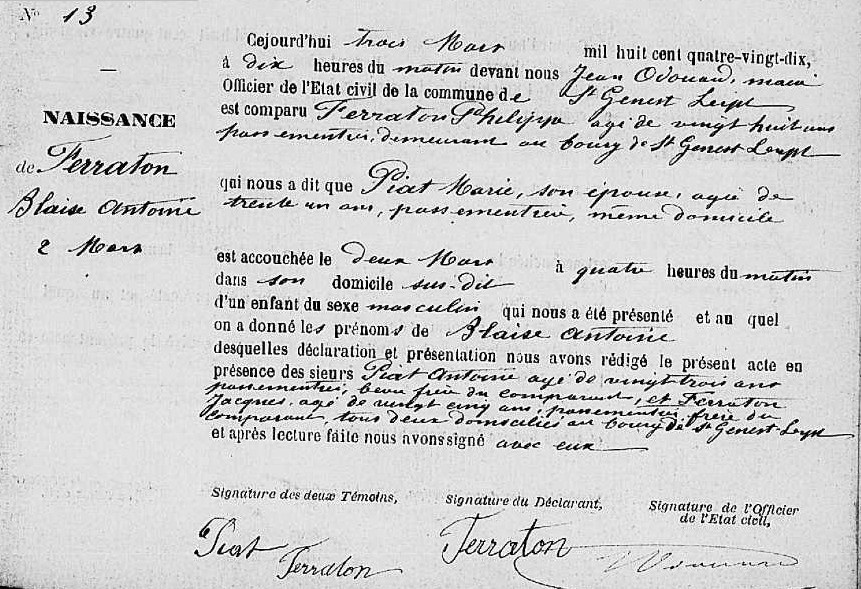 No 13
NAISSANCE
de Ferraton
Blaise Antoine
2 Mars
Cejourd'hui trois Mars mil huit cent quatre-vingt-dix,
à dix heures du matin devant nous Jean Odouard, maire
Officier de l'Etat civil de la commune de St Genest Lerpt
est comparu Ferraton Philippe agé de vingt huit ans
passementier, demeurant au bourg de St Genest Lerpt
qui nous a dit que Piat Marie, son épouse, agée de
trente un ans, passementière, même domicile
est accouchée le deux Mars à quatre heures du matin
dans son domicile sus-dit
d'un enfant du sexe masculin qui nous a été présenté et au quel
on a donné les prénoms de Blaise Antoine
desquelles déclaration et présentation nous avons rédigé le présent acte en
présence des sieurs Piat Antoine agé de vingt trois ans
passementier, beau frère du comparant, et Ferraton
Jacques, agé de vingt cinq ans, passementier, frère du
comparant, tous deux domiciliés au bourg de St Genest-Lerpt
et après lecture faite nous avons signé avec eux
Signature des deux Témoins, Signature du Déclarant, Signature de l'Officier
de l'Etat civil,
Piat Ferraton Ferraton